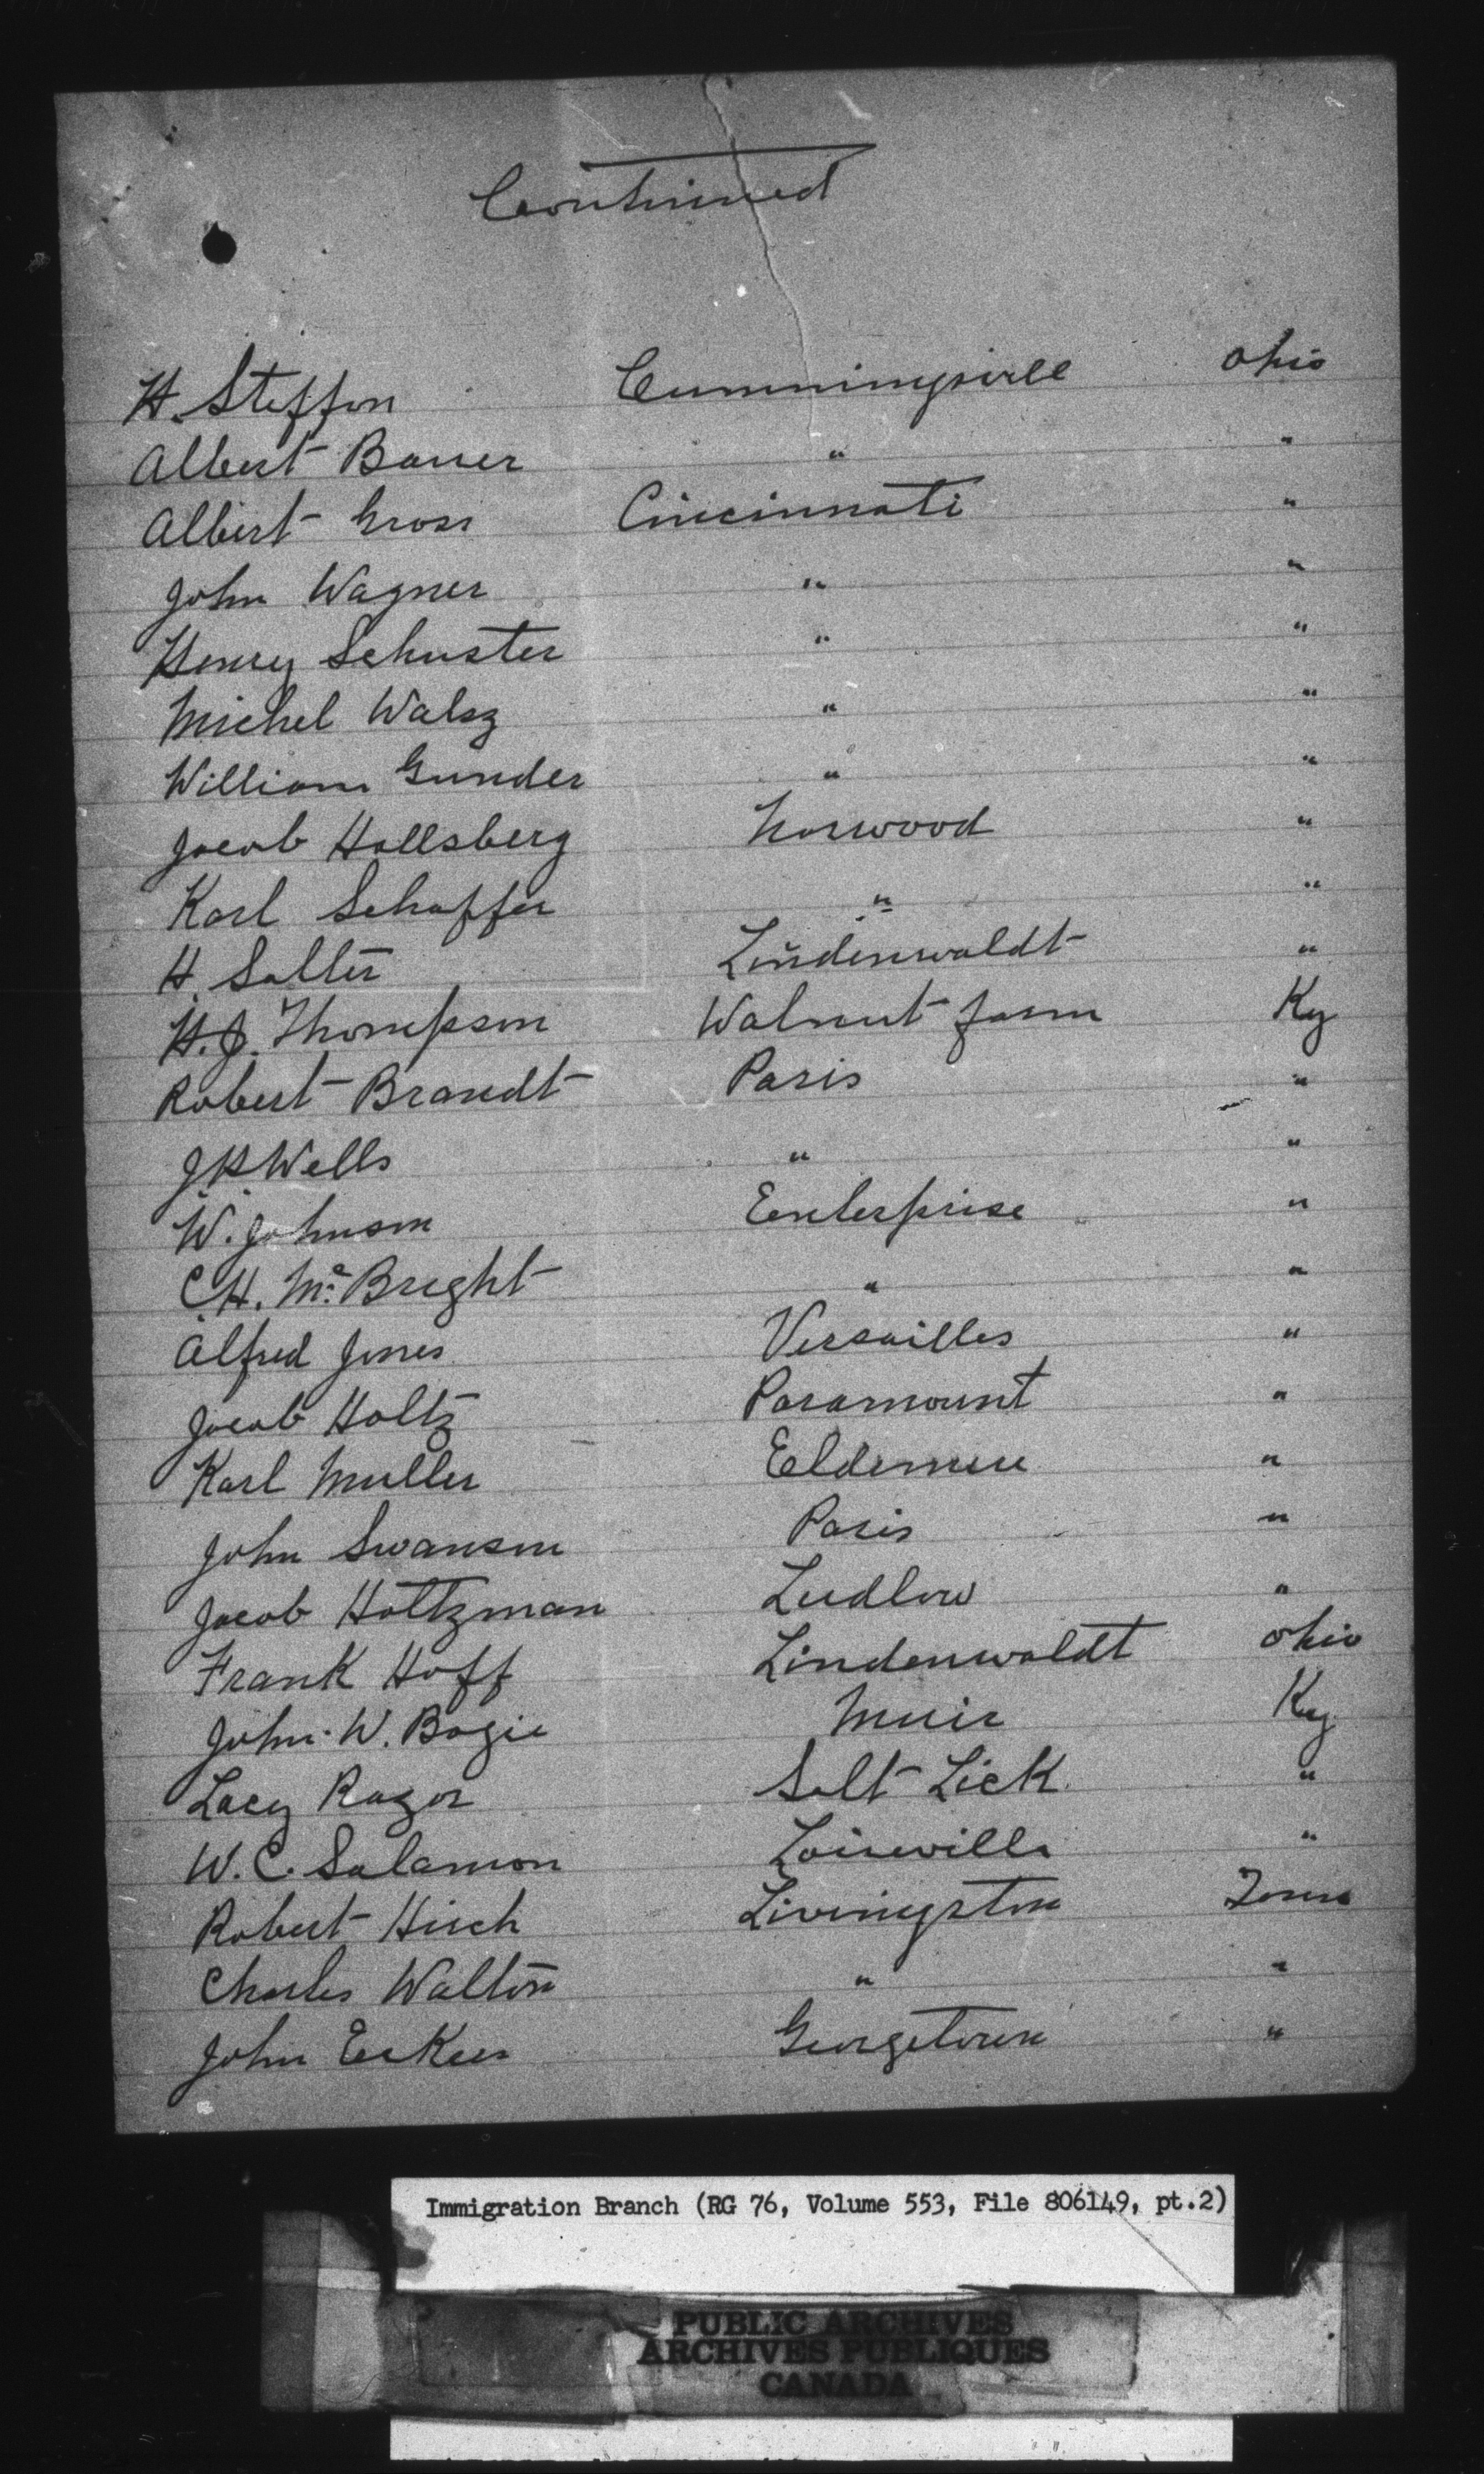 Continued
H. Steffon Cummingsville Ohio
Albert Bauer " "
Albert Gross Cincinnati "
John Wagner " "
Henry Schuster " "
Michel Walsz " "
William Gunder " "
Jacob Hollsberg Norwood "
Karl Schaffer " "
H. Salter Lindenwaldt "
H.J. Thompson Walnut farm Ky
Robert Brandt Paris "
J.H. Wells " "
W. Johnson Eenterprise "
C.H. McBright " "
Alfred Jones Versailles "
Jacob Holtz Paramount "
Karl Muller Eeldemere "
John Swanson Paris "
Jacob Holtzman Ludlow "
Frank Hoff Lindenwaldt Ohio
John W. Bogie Muir Ky
Lacy Razor Salt Lick "
W.C. Salamon Loisevills "
Robert Hirch Livingston
Charles Walton " "
John Georgetown "
Immigration Branch (RG 76, Volume 553, File 806149, pt.2)
PUBLIC ARCHIVES
ARCHIVES PUBLIQUES
CANADA